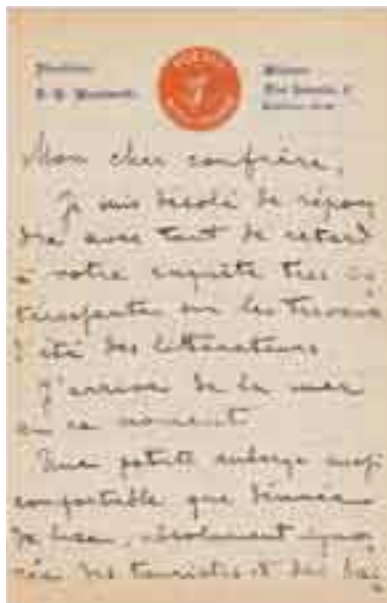 POESIA
Mon cher confrère,
Je suis désolé de répon
dre avec tant de retard
à votre enquête très in
téressante sur les travaux
d'été des littérateurs.
J'arrive de la mer
en ce moment
Une petite auberge aussi
confortable que
absolument igno
rée des touristes et des bai